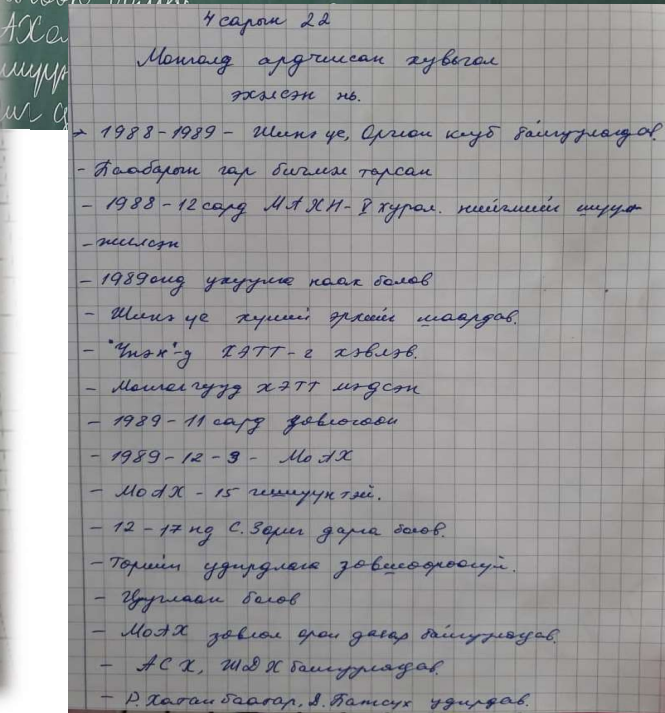 АХа
шуур
4 сарын 22
Монголд ардчилсан хувьгал
эхэлсэн нь.
→ 1988-1989 - Шинэ үе, Оргион клуб байгуулагдав.
- Баабарын гар бичмэл тарсан
- 1988-12 сард МАХН-V хурал. нийгмийн шуур
- жилсэн
- 1989 онд ухуулга наах болов
- Шинэ үе хүний эрхийг шаардав.
- "Үнэн"-д ХЭТТ-г хэвлэв.
- Монголчууд ХЭТТ мэдсэн
- 1989-11 сард зөвлөгөөн
- 1989-12-3 - МоАХ
- МоАХ - 15 гишүүнтэй.
- 12-17 нд С. Зориг дарга болов.
- Төрийн удирдлага зөвшөөрөөгүй.
- Цуглаан болов
- МоАХ зөвлөл орон даяар байгуулагдав.
- АСХ, ШДХ байгуулагдав.
- Р. Хатанбаатар, Д. Батсүх удирдав.